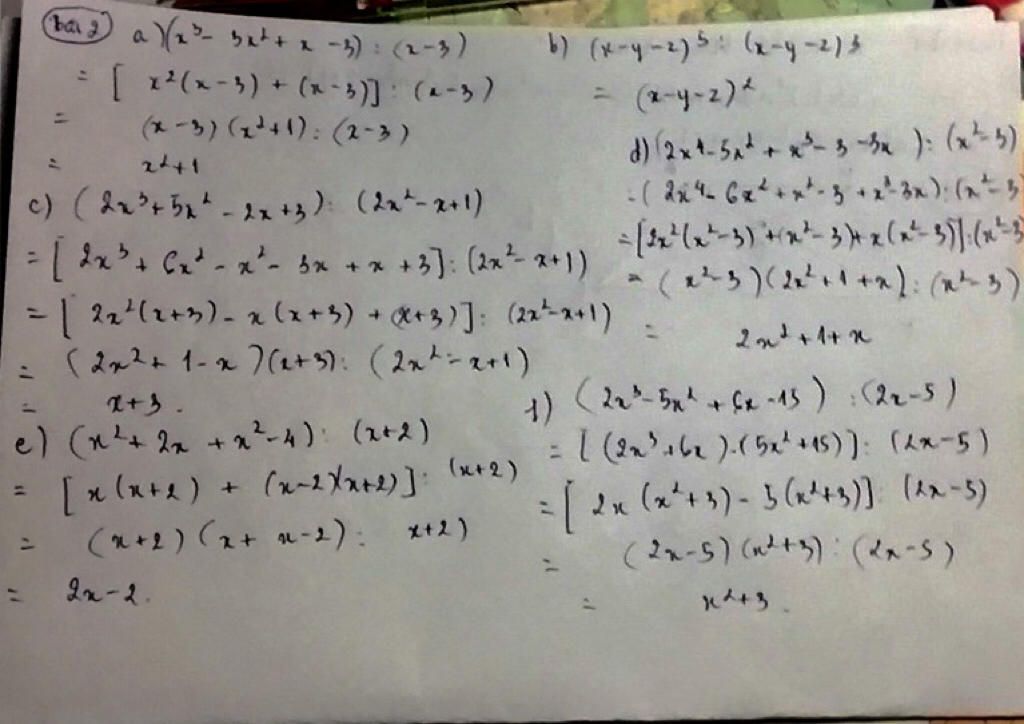 Bài 2
a) (x³ - 3x² + x - 3) : (x-3)
= [ x²(x-3) + (x-3)] : (x-3)
= (x-3)(x²+1) : (x-3)
= x²+1
b) (x-y-z)⁵ : (x-y-z)³
= (x-y-z)²
c) (2x³+5x² - 2x+3) : (2x²-x+1)
= [ 2x³ + 6x² - x² - 3x + x + 3] : (2x²-x+1)
= [ 2x²(x+3) - x(x+3) + (x+3)] : (2x²-x+1)
= (2x² + 1 - x)(x+3) : (2x² - x+1)
= x+3.
d) (2x⁴-5x² + x³ - 3 - 3x) : (x²-3)
= (2x⁴ - 6x² + x² - 3 + x³ - 3x) : (x²-3
= [2x²(x²-3) + (x²-3) + x(x²-3)] : (x²-3
= (x²-3)(2x²+1+x) : (x²-3)
= 2x²+1+x
e) (x²+2x + x²-4) : (x+2)
= [ x(x+2) + (x-2)(x+2)] : (x+2)
= (x+2)(x+ x-2) : x+2)
= 2x-2.
f) (2x³-5x²+6x-15) : (2x-5)
= [ (2x³+6x) - (5x²+15)] : (2x-5)
= [ 2x(x²+3) - 5(x²+3)] : (2x-5)
= (2x-5)(x²+3) : (2x-5)
= x²+3.